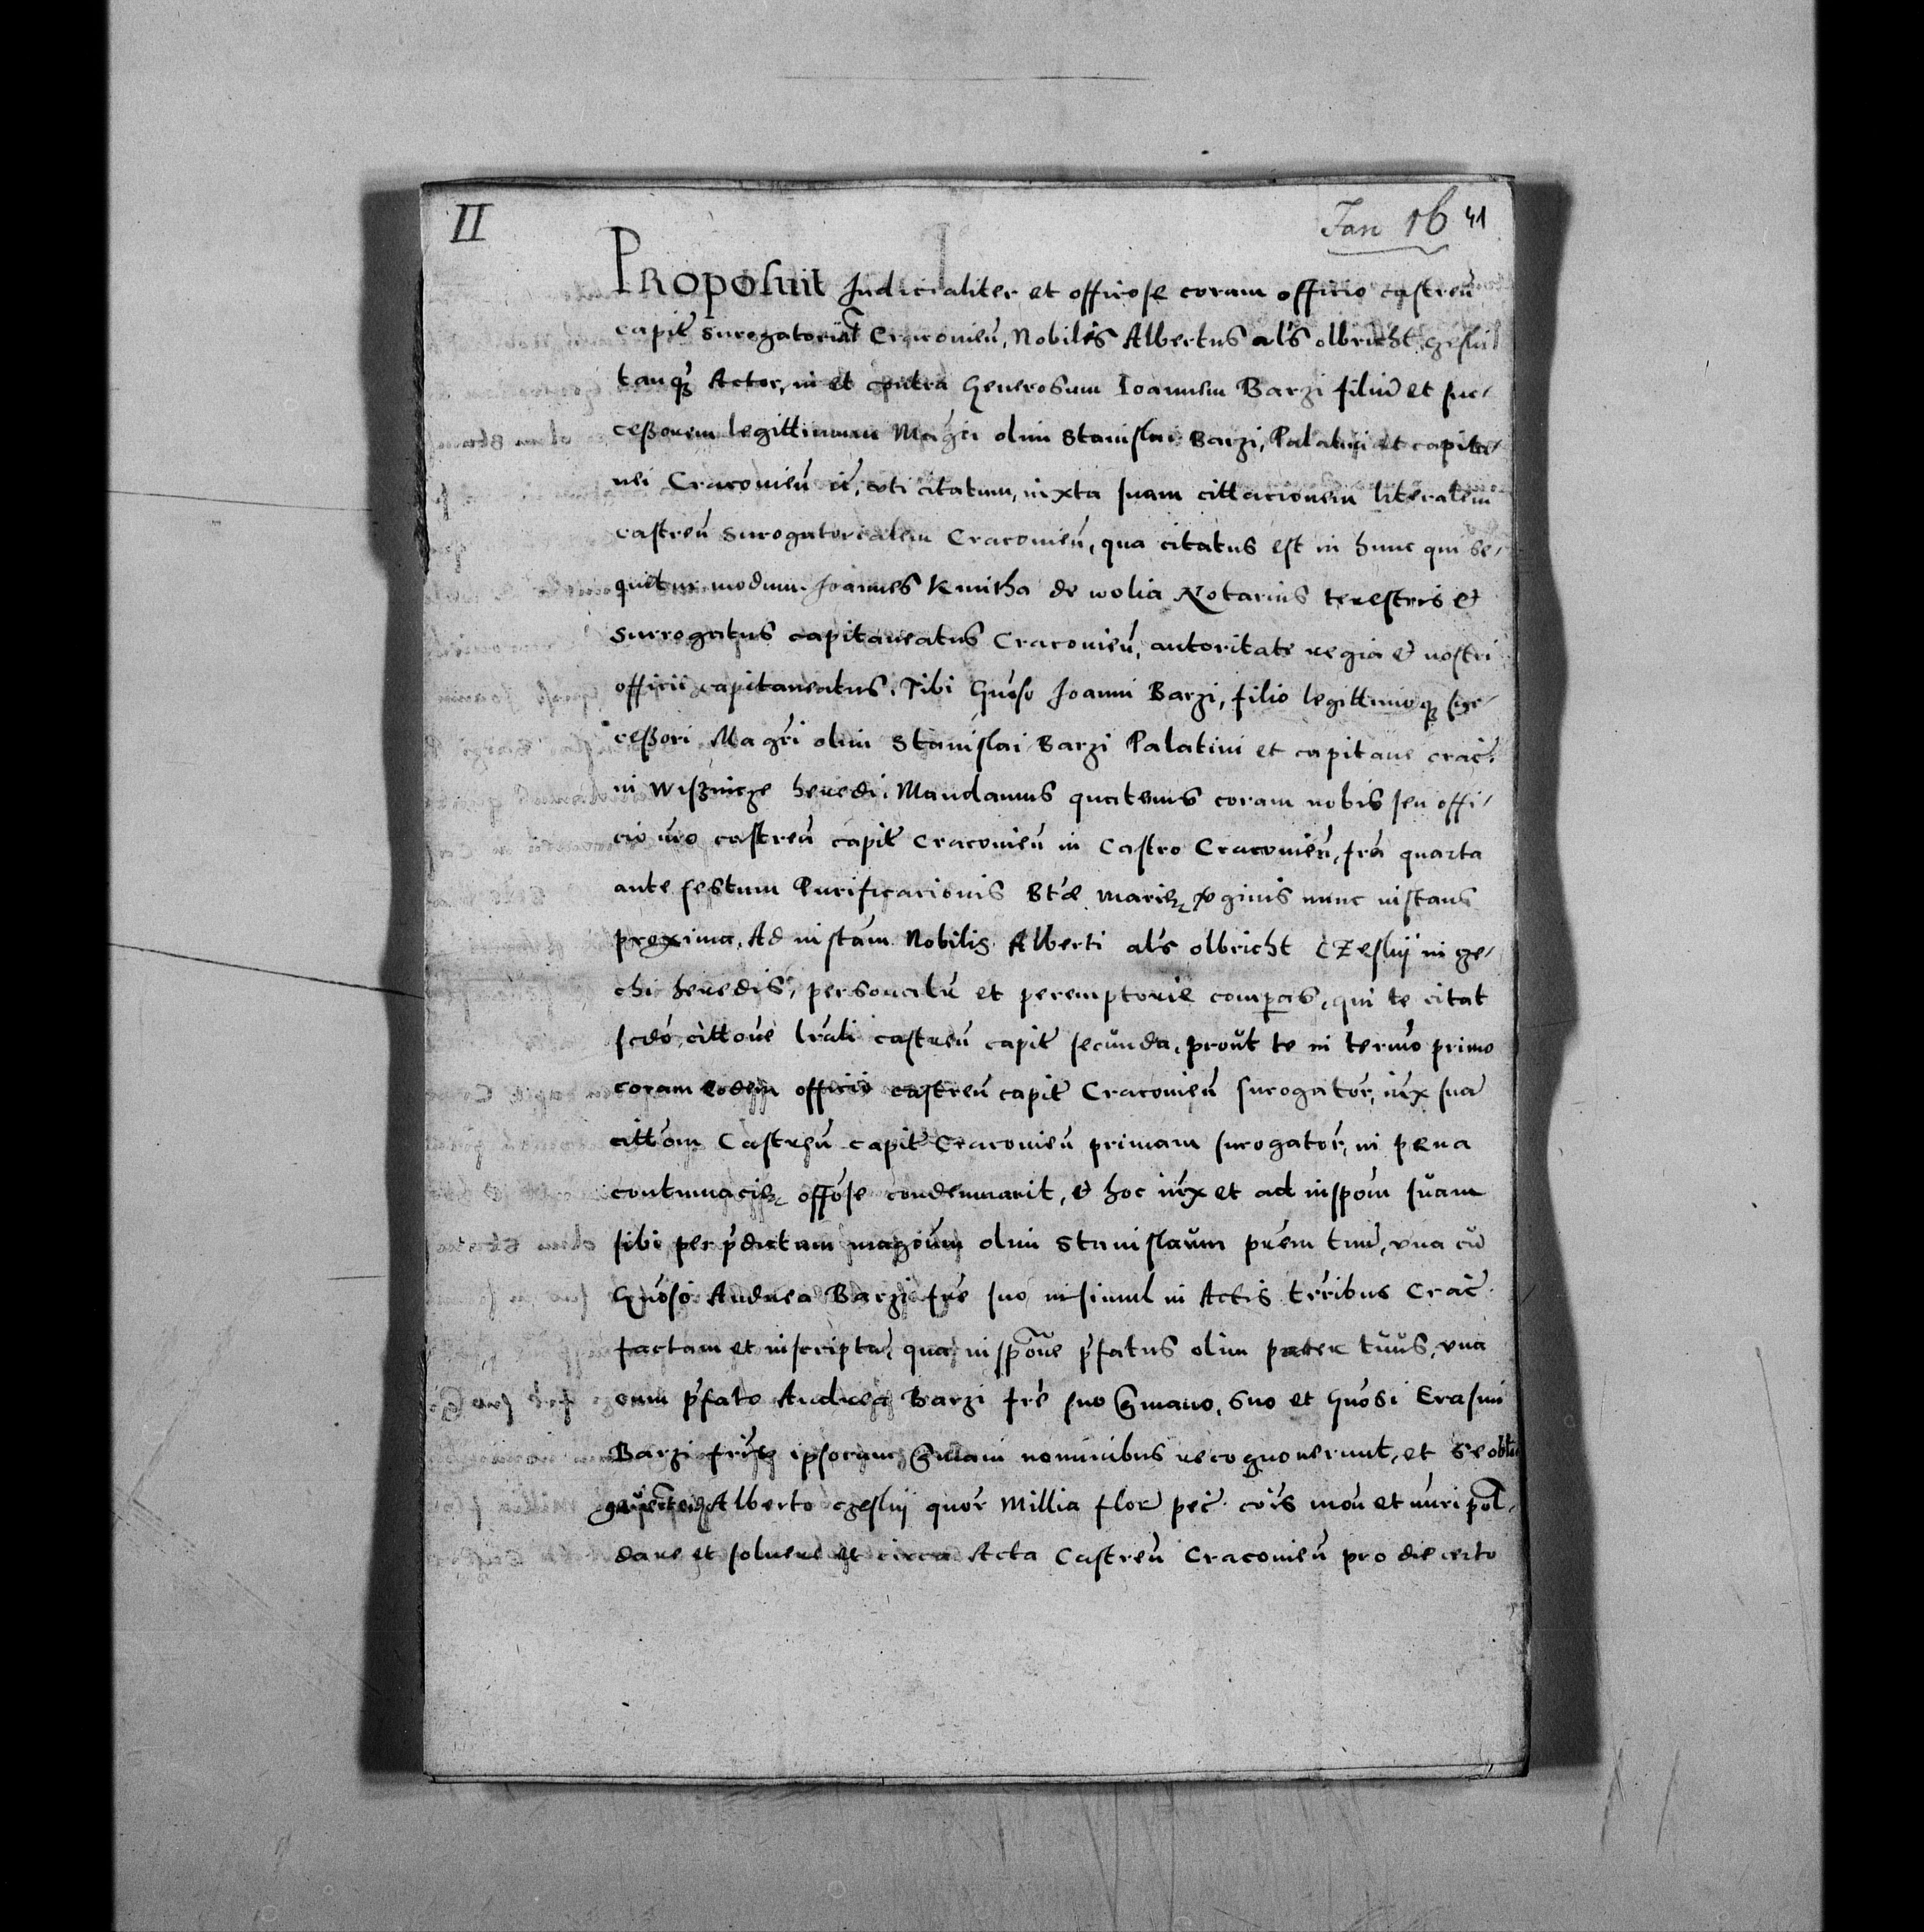 II
Jan 16 41
Proposuit Judicialiter et officose coram officio castreñ
capit̃ surogatorial̃ Cracovieñ, Nobilis Albertus al's olbricht
tanq̃ Actor, in et contra Generosum Ioannem Barzi filiũ et suc-
ceßorem legittimum Mag'ci olim Stanislai Barzi, Palatini et capita-
nei Cracovieñ uti citatum, iuxta suam cittacionem literalem
castreñ surogatorialem Cracovieñ, qua citatus est in hunc qui se-
quitur modum. Joannes Kmitha de wolia Notarius terestris et
surrogatus capitaneatus Cracovieñ, autoritate regia et nostri
officii capitaneatus. Tibi Gn'oso Joanni Barzi, filio legittimoq̃ suc-
ceßori Mag'ci olim Stanislai Barzi Palatini et capitane crac̃.
in Wisznicze heredi. Mandamus quatenus coram nobis seu offi-
cio nr̃o castreñ capit̃ Cracovieñ in Castro Cracovieñ, fr̃a quarta
ante festum Purificacionis Bt'æ Mariæ v̓ginis nunc instans
proxima, Ad instam Nobilis Alberti al's olbricht CZeslii in ze-
chi heredis, personalr̃ et peremptorie compas, qui te citat
scdo cittone lr̃ali castreñ capit̃ secunda, prout te in termo primo
coram eodem officio castreñ capit̃ Cracovieñ surogator, iux sua
cittom Castreñ capit̃ Cracovieñ primam surogator, in pena
contumaciæ offose condemnavit, et hoc iux et ad inspom suam
sibi per p'dictum magcum olim Stanislaum prem tuũ, una cũ
Gn'oso Andrea Barzi fr̃e suo insimul in Actis terribus Crac̃
factam et inscriptã, qua inspone p'fatus olim pater tuus, una
cum p'fato Andrea Barzi fr̃e suo germano, suo et Gn'osi Erasmi
Barzi fris ipsorum germani nominibus recognoverunt, et se
Alberto czeslii quor Millia flor pec̃. cois mon et nuri pol.
dare et solvere et circa Acta Castreñ Cracovieñ pro die certo